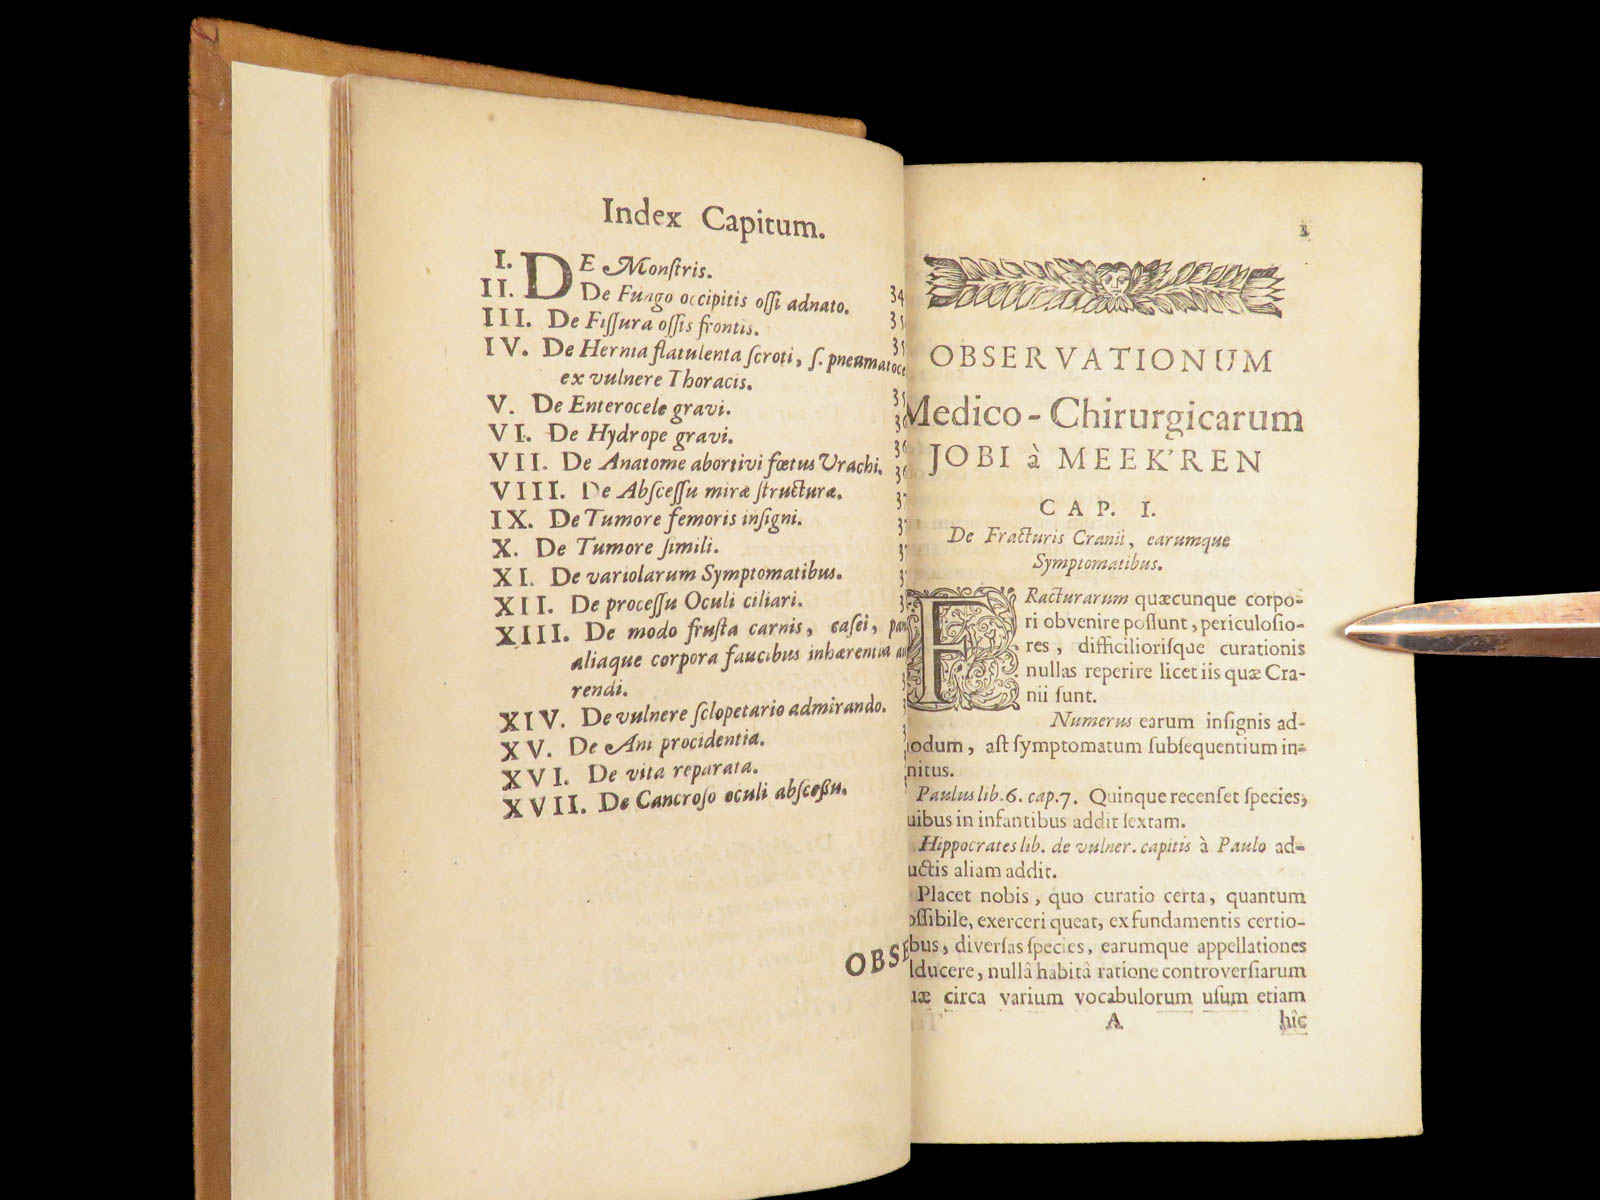 Index Capitum.
I. DE Monſtris.
II. De Fungo occipitis oſſi adnato. 34
III. De Fiſſura oſſis frontis. 35
IV. De Hernia flatulenta ſcroti, ſ. pneumatoce
ex vulnere Thoracis.
V. De Enterocele gravi.
VI. De Hydrope gravi.
VII. De Anatome abortivi fœtus Urachi.
VIII. De Abſceſſu miræ ſtructuræ. 37
IX. De Tumore femoris inſigni.
X. De Tumore ſimili.
XI. De variolarum Symptomatibus.
XII. De proceſſu Oculi ciliari.
XIII. De modo fruſta carnis, caſei,
aliaque corpora faucibus inhærentia
rendi.
XIV. De vulnere ſclopetario admirando.
XV. De Ani procidentia.
XVI. De vita reparata.
XVII. De Cancroſo oculi abſceßu.
OBSE
OBSERVATIONUM
Medico-Chirurgicarum
JOBI à MEEK'REN
CAP. I.
De Fracturis Cranii, earumque
Symptomatibus.
FRacturarum quæcunque corpo-
ri obvenire poſſunt, periculoſio-
res, difficilioriſque curationis
nullas reperire licet iis quæ Cra-
nii ſunt.
Numerus earum inſignis ad-
odum, aſt ſymptomatum ſubſequentium in-
nitus.
Paulus lib. 6. cap. 7. Quinque recenſet ſpecies,
uibus in infantibus addit ſextam.
Hippocrates lib. de vulner. capitis à Paulo ad-
uctis aliam addit.
Placet nobis, quo curatio certa, quantum
oſſibile, exerceri queat, ex fundamentis certio-
bus, diverſas ſpecies, earumque appellationes
dducere, nullâ habitâ ratione controverſiarum
uæ circa varium vocabulorum uſum etiam
A hîc